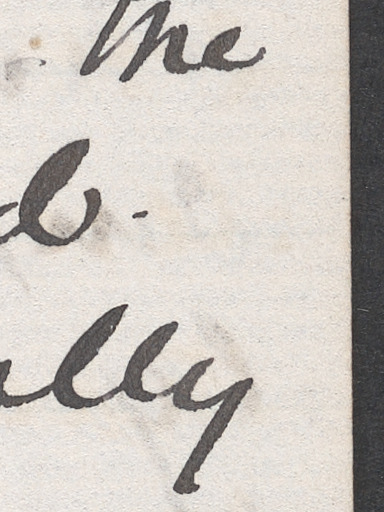 the
b-
ally